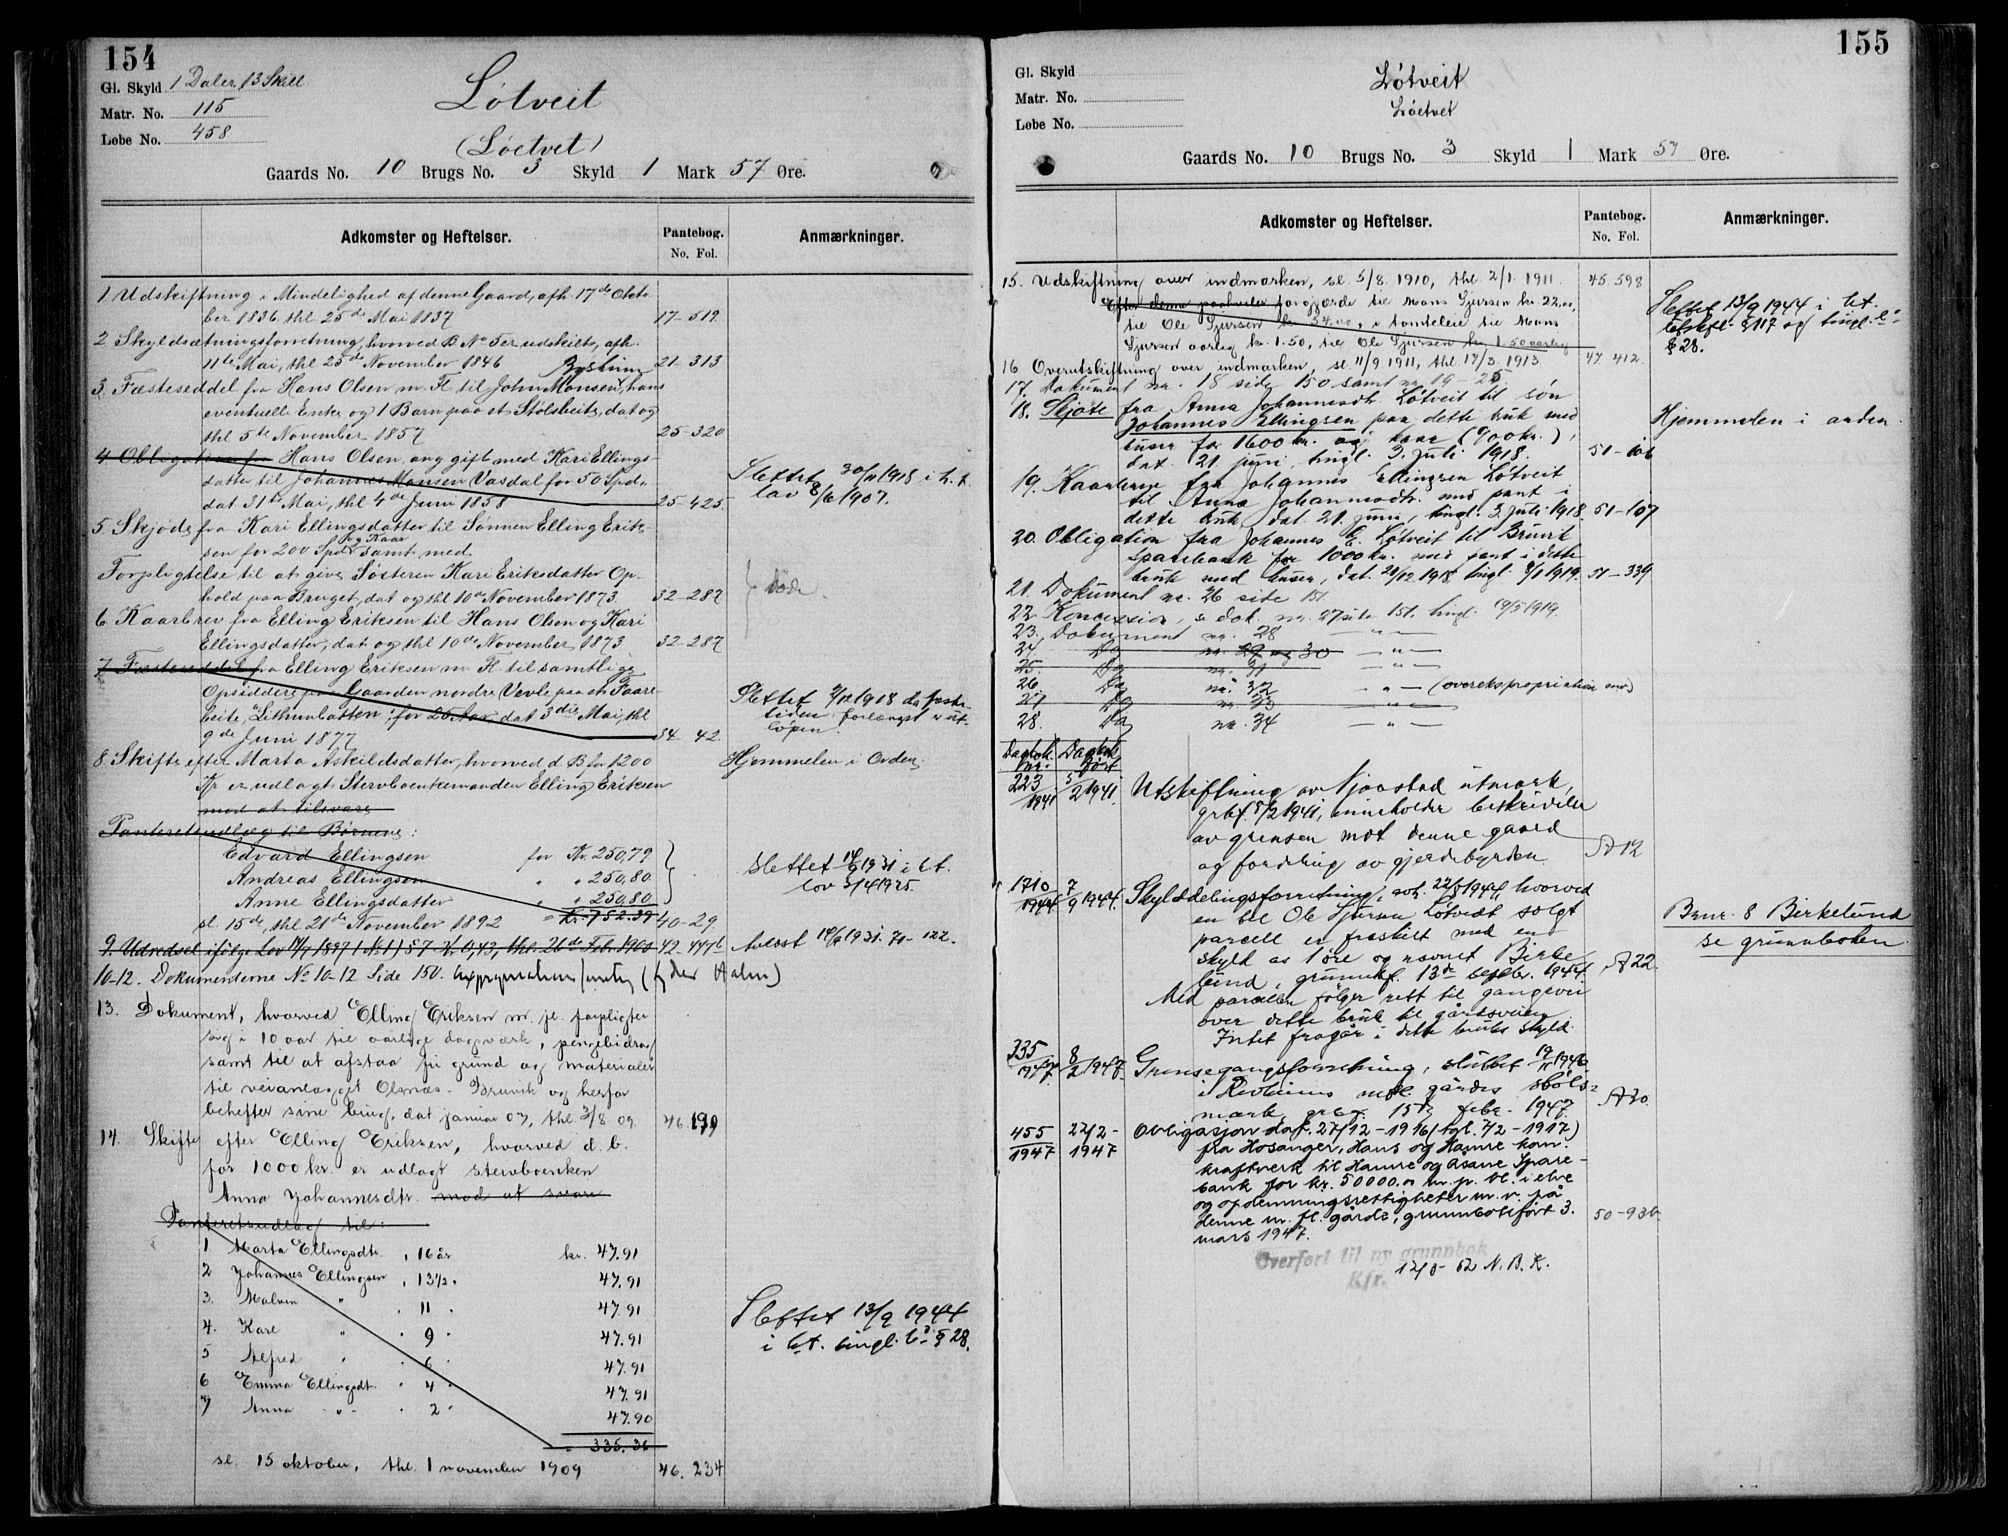 154
Gl. Skyld 1 Daler 13 Skill
Matr. No. 115
Løbe No. 458
Løtveit
(Løetvet)
Gaards No. 10 Brugs No. 3 Skyld 1 Mark 57 Øre.
Adkomster og Heftelser.
Pantebog. No. Fol.
Anmærkninger.
1 Udskiftning i Mindelighed af denne Gaard, afh. 17de Okto-
ber 1836, thl. 25de Mai 1837 17-519.
2 Skyldsætningsforretning, hvorved B No 5 er udskilt, afh.
11te Mai, thl 25de November 1846 21-313
3. Fæsteseddel fra Hans Olsen m. Fl. til John Monsen, hans
eventuelle Enke og 1 Barn paa et Stølsbeite, dat og
thl 5te November 1857 25-320
4 Obligation fra Hans Olsen, ang gift med Kari Ellings-
datter til Johannes Monsen Vasdal for 50 Spd.,
dat 31te Mai, thl 4de Juni 1858 25-425.
Slettet 30/11 1918 i h. t.
lov 8/6 1907.
5 Skjøde fra Kari Ellingsdatter til Sønnen Elling Erik-
sen for 200 Spd. og Kaar samt med
Forpligtelse til at give Søsteren Kari Eriksdatter Op-
hold paa Bruget, dat og thl 10de November 1873 32-287
død.
6 Kaarbrev fra Elling Eriksen til Hans Olsen og Kari
Ellingsdatter, dat og thl 10de November 1873 32-287
7 Fæsteseddel fra Elling Eriksen m Fl til samtlige
Opsiddere paa Gaarden nordre Vevle paa et Faare-
beite, "Lithunbotten" for 25 Aar, dat 3die Mai, thl
9de Juni 1877 34-42.
Slettet 1918 da fæste-
tiden forlængst er ut-
løpen.
8. Skifte efter Marta Askildsdatter, hvorved d. B. for 1200
Kr er udlagt Stervboenkemanden Elling Eriksen
mod at tilsvare
Hjemmelen i Orden.
Panteretsudlæg til Børnene:
Edvard Ellingsen for Kr. 250,79
Andreas Ellingsen " " 250,80
Anne Ellingsdatter " " 250,80
sl. 15de, thl 21de November 1892 = Kr. 752.39 40-29.
slettet 1931 i h.t.
lov 3/4 1925.
9. Udredsel ifølge Lov 1897 (No 1) § 7 Kr 0,43, thl. 26de Feb. 1900 42-447b
Avløst 1931. 71-122.
10-12. Dokumenterne No 10-12 Side 150.
13. Dokument, hvorved Elling Eriksen m. fl. forpligter
sig i 10 aar til aarlige dagværk, pengebidrag
samt til at afstaa fri grund og materialer
til veianlægget Olsnæs-Bruvik og herfor
behefter sine brug, dat januar 07, thl. 3/8 09 46 199
14. Skifte efter Elling Eriksen, hvorved d. b.
for 1000 kr. er udlagt stervboenken
Anna Johannesdtr. mod at svare
Panteretsudlæg til:
1 Marta Ellingsdtr. , 16 år kr. 47.91
2 Johannes Ellingsen , 13½ " 47.91
3. Malvin " " 11 " 47.91
4. Karl " " 9 " 47.91
5 Alfred " " 6 " 47.91
6 Emma Ellingsdt. " 4 " 47.91
7 Anna - " - " 2 " 47.90
" 335.36
sl. 15 oktober, thl. 1 november 1909 46. 234
Slettet 13/9 1944
i h.t. tingl. l. § 28.
155
Gl. Skyld
Matr. No.
Løbe No.
Løtveit
Løetvet
Gaards No. 10 Brugs No. 3 Skyld 1 Mark 57 Øre.
Adkomster og Heftelser.
Pantebog. No. Fol.
Anmærkninger.
15. Udskiftning over indmarken, sl. 5/8. 1910, thl. 2/1. 1911. 45 598
Efter denne paahviler forgjærde til Mons Sjursen kr. 22.00,
til Ole Sjursen kr. 34.00, i tomteleie til Mons
Sjursen aarlig kr. 1.50, til Ole Sjursen kr. 1.50 aarlig
Slettet 13/9 1944 i h.t.
utskfl. § 117 og tingl. l.
§ 28.
16 Overutskiftning over indmarken, sl. 11/9 1911, thl. 17/3. 1913 47 412.
17. Dokument nr. 18 side 150 samt nr. 19-25
18. Skjøte fra Anna Johannesdtr. Løtveit til søn
Johannes Ellingsen paa dette bruk med
huser for 1600 kr. og kaar (900 kr.),
dat. 21 juni, tingl. 3. juli 1918. 51-106
Hjemmelen i orden.
19. Kaarbrev fra Johannes Ellingsen Løtveit
til Anna Johannesdtr. med pant i
dette bruk, dat. 21. juni, tingl. 3. juli 1918. 51-107
20. Obligation fra Johannes E. Løtveit til Bruvik
Sparebank for 1000 kr. med pant i dette
bruk med huser, dat. 21/12 1918, tingl. 8/1 1919. 51-339
21. Dokument nr. 26 side 151.
22. Koncession, se dok. nr. 27 side 151. tingl. 1919.
23. Dokument nr. 28 - " -
24. Do nr. 29 og 30 - " -
25. Do nr. 31 - " -
26 Do nr. 32 - " - (overekspropriation)
27 Do nr. 33 - " -
28. Do nr. 34 - " -
Dagbok nr. Dagbok ført
223/1941 5/2 1941. Utskiftning av Njaastad utmark,
grbf. 5/2 1941, inneholder beskrivelse
av grensen mot denne gaard
og fordeling av gjerdebyrden A 12
1710/1944 7/9 1944. Skylddelingsforretning, avh. 22/8 1944, hvorved
en til Ole Sjursen Løtveit solgt
parcell er fraskilt med en
skyld av 1 øre og navnet Birke-
lund, grunnbf. 13de septbr. 1944. A 22.
Med parcellen følger rett til gangvei
over dette bruk til gårdsveien.
Intet fragår i dette bruks skyld.
Bnr. 8 Birkelund
se grunnboken.
335/1947 8/2 1947. Grensegangsforretning, sluttet 19/11 1946
i Revheims m.fl. gårdes støls-
mark, grbf. 15de febr. 1947. A 30.
455/1947 22/2-1947 Obligasjon dat. 27/12-1916 (tgl. 7/2-1917)
fra Hosanger, Haus og Hamre kom.
kraftverk til Hamre og Åsane Spare-
bank for kr. 50000.00 m. p. bl. i elve
og opdemningsrettigheter m. v. på
denne m. fl. gårde, grunnboksført 3.
mars 1947. 50-936.
Overført til ny grunnbok
Kfr. 12/5-52 N. B. K.